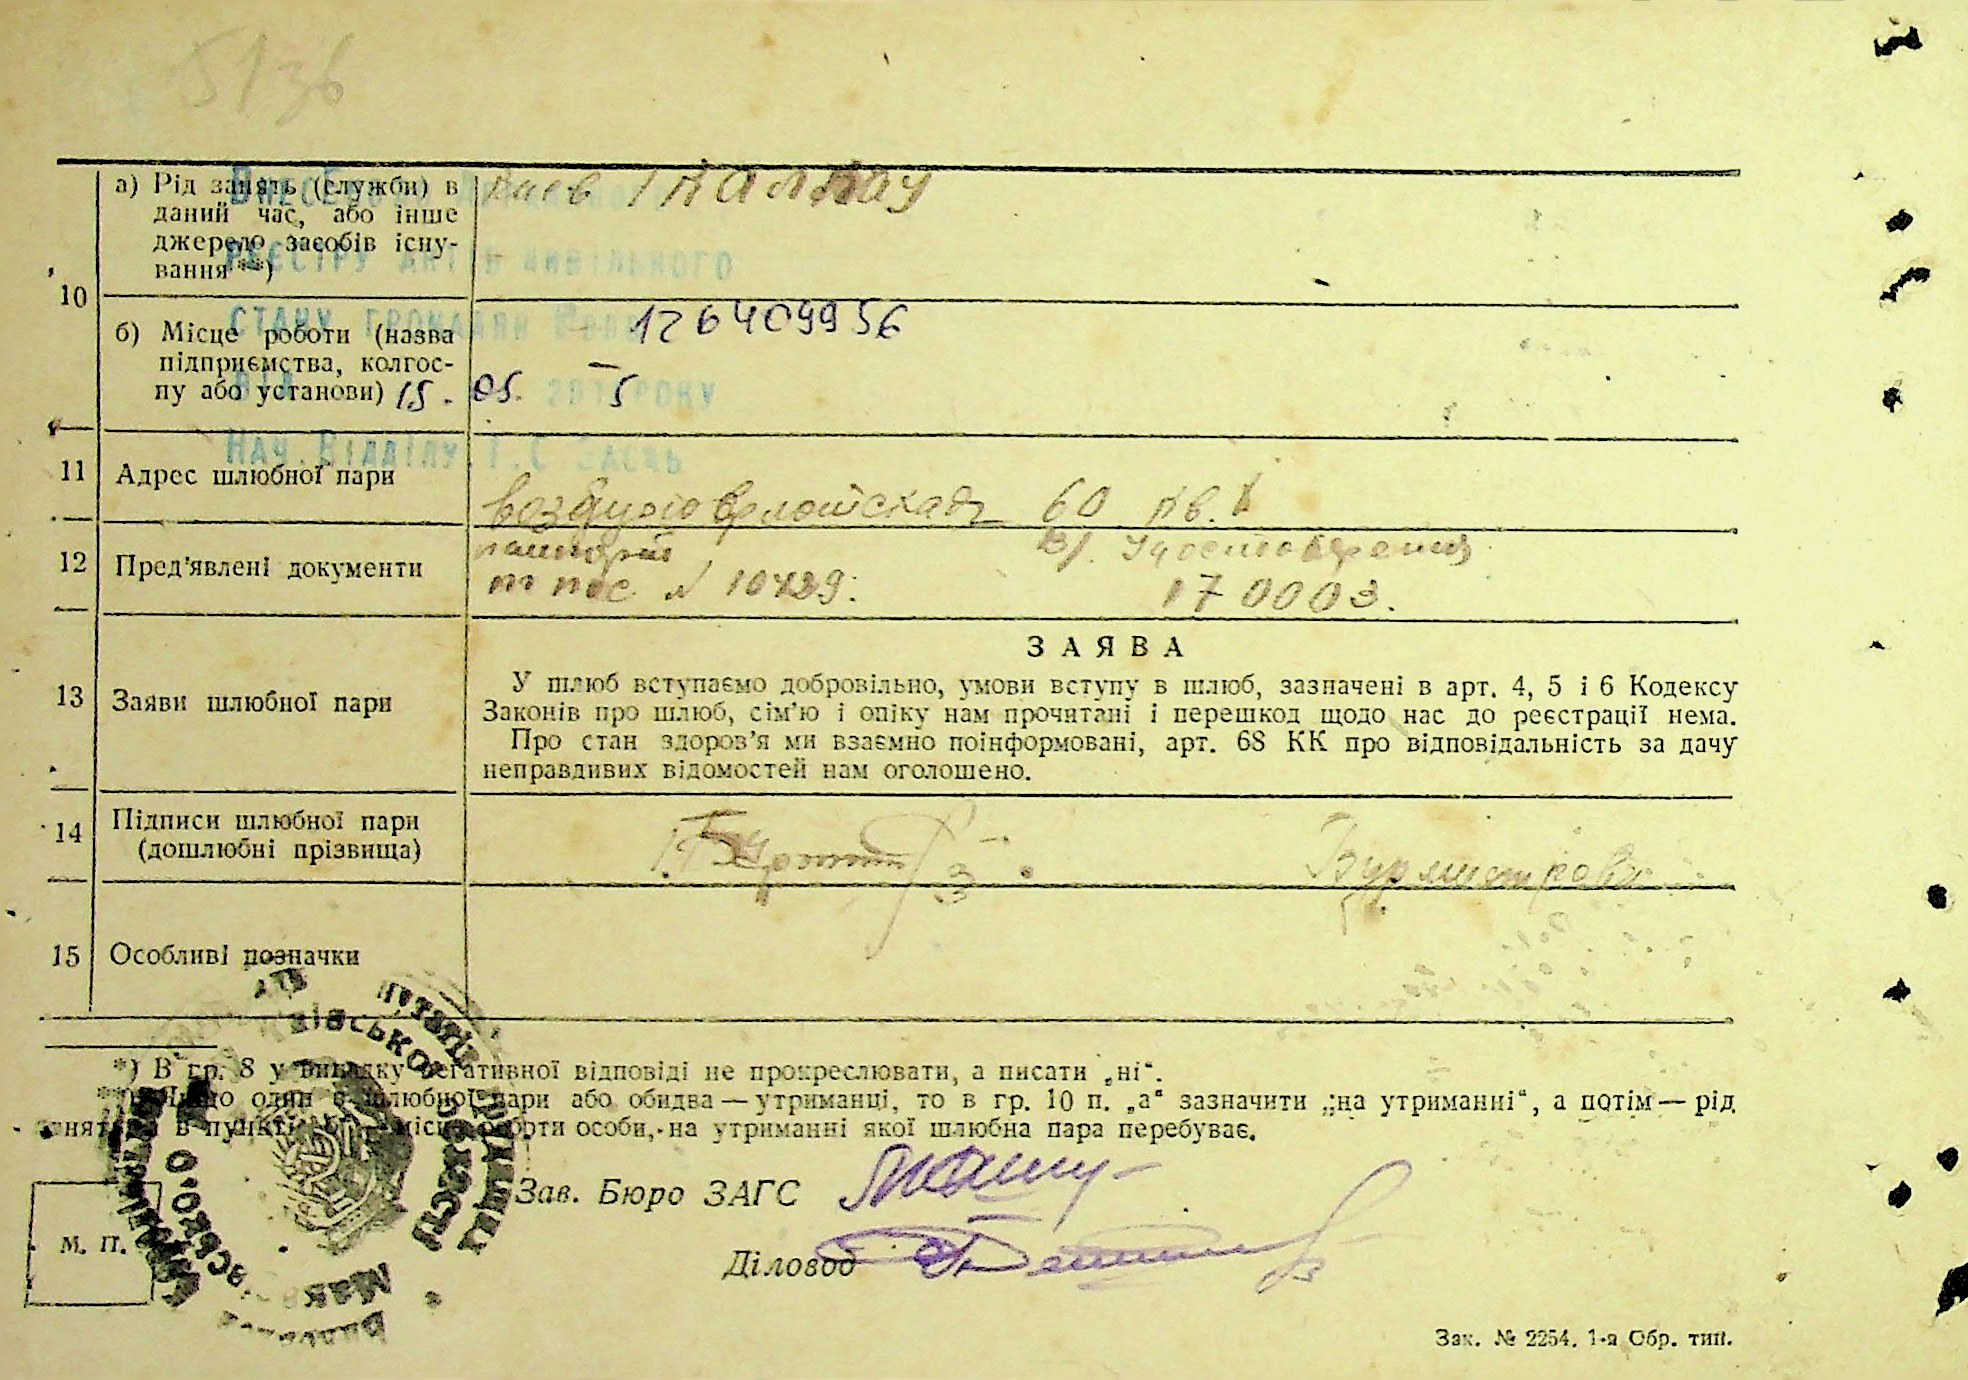 5136
а) Рід занять (служби) в
даний час, або інше
джерело засобів існу-
вання**)
10
РЕЄСТРУ АКТІВ ЦИВІЛЬНОГО
СТАНУ ГРОМАДЯН
126409956
б) Місце роботи (назва
підприємства, колгос-
пу або установи)
15. 05. 5
РОКУ
НАЧ ВІДДІЛУ
11 Адрес шлюбної пари
60 кв. 1
12 Пред'явлені документи
паспорт
В/. Удостоверения
№ 10729.
170003.
ЗАЯВА
13 Заяви шлюбної пари
У шлюб вступаємо добровільно, умови вступу в шлюб, зазначені в арт. 4, 5 і 6 Кодексу
Законів про шлюб, сім'ю і опіку нам прочитані і перешкод щодо нас до реєстрації нема.
Про стан здоров'я ми взаємно поінформовані, арт. 68 КК про відповідальність за дачу
неправдивих відомостей нам оголошено.
14 Підписи шлюбної пари
(дошлюбні прізвища)
Бурмистрова
15 Особливі позначки
*) В гр. 8 у випадку негативної відповіді не прокреслювати, а писати „ні“.
**) Якщо один з шлюбної пари або обидва — утриманці, то в гр. 10 п. „а“ зазначити „на утриманні“, а потім — рід
занять, а в пункті „б“ — місце роботи особи, на утриманні якої шлюбна пара перебуває.
Київської
Зав. Бюро ЗАГС
М. П.
Діловод
Зак. № 2254. 1-а Обр. тип.